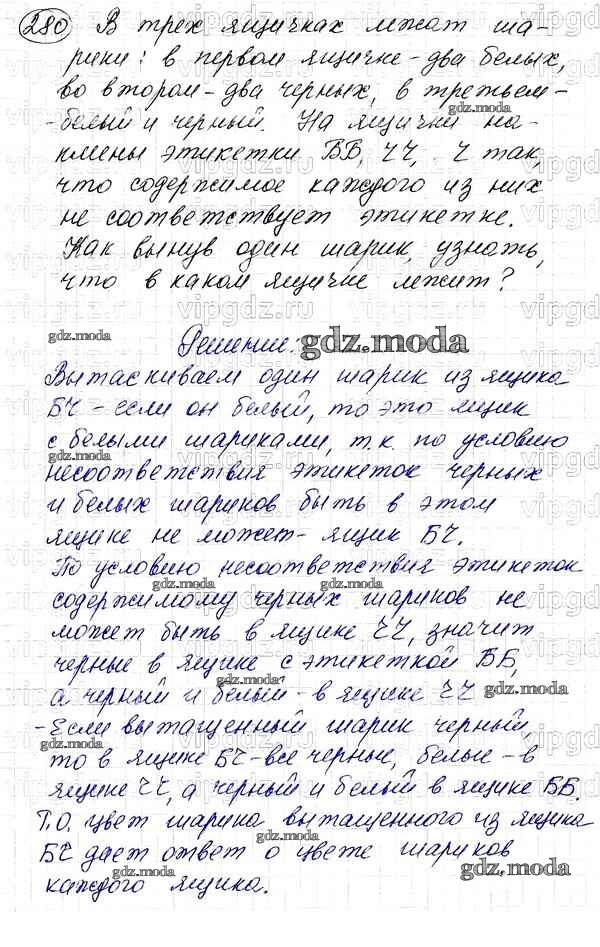 280 В трех ящичках лежат ша-
рики: в первом ящичке - два белых,
во втором - два черных, в третьем -
- белый и черный. На ящички на-
клеены этикетки ББ, ЧЧ, Ч так,
что содержимое каждого из них
не соответствует этикетке.
Как вынув один шарик, узнать,
что в каком ящичке лежит?
Решение.
Вытаскиваем один шарик из ящика
БЧ - если он белый, то это ящик
с белыми шариками, т.к. по условию
несоответствия этикеток черных
и белых шариков быть в этом
ящике не может - ящик БЧ.
По условию несоответствия этикеток
содержимому черных шариков не
может быть в ящике ЧЧ, значит
черные в ящике с этикеткой ББ,
а черный и белый - в ящике ЧЧ
- Если вытащенный шарик черный,
то в ящике БЧ - все черные, белые - в
ящике ЧЧ, а черный и белый в ящике ББ.
Т.О. цвет шарика вытащенного из ящика
БЧ дает ответ о цвете шариков
каждого ящика.
gdz.moda
vipgdz.ru